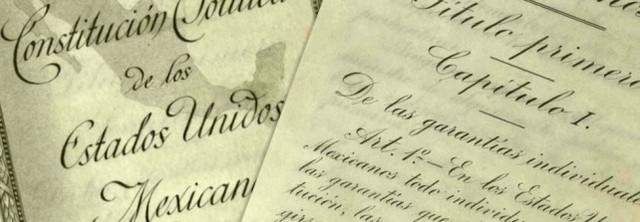 Constitución Política
de los
Estados Unidos
Mexican
Título primero
Capítulo I.
De las garantías individual
Art. 1º.— En los Estados U
Mexicanos todo individu
las garantías que
titución, las